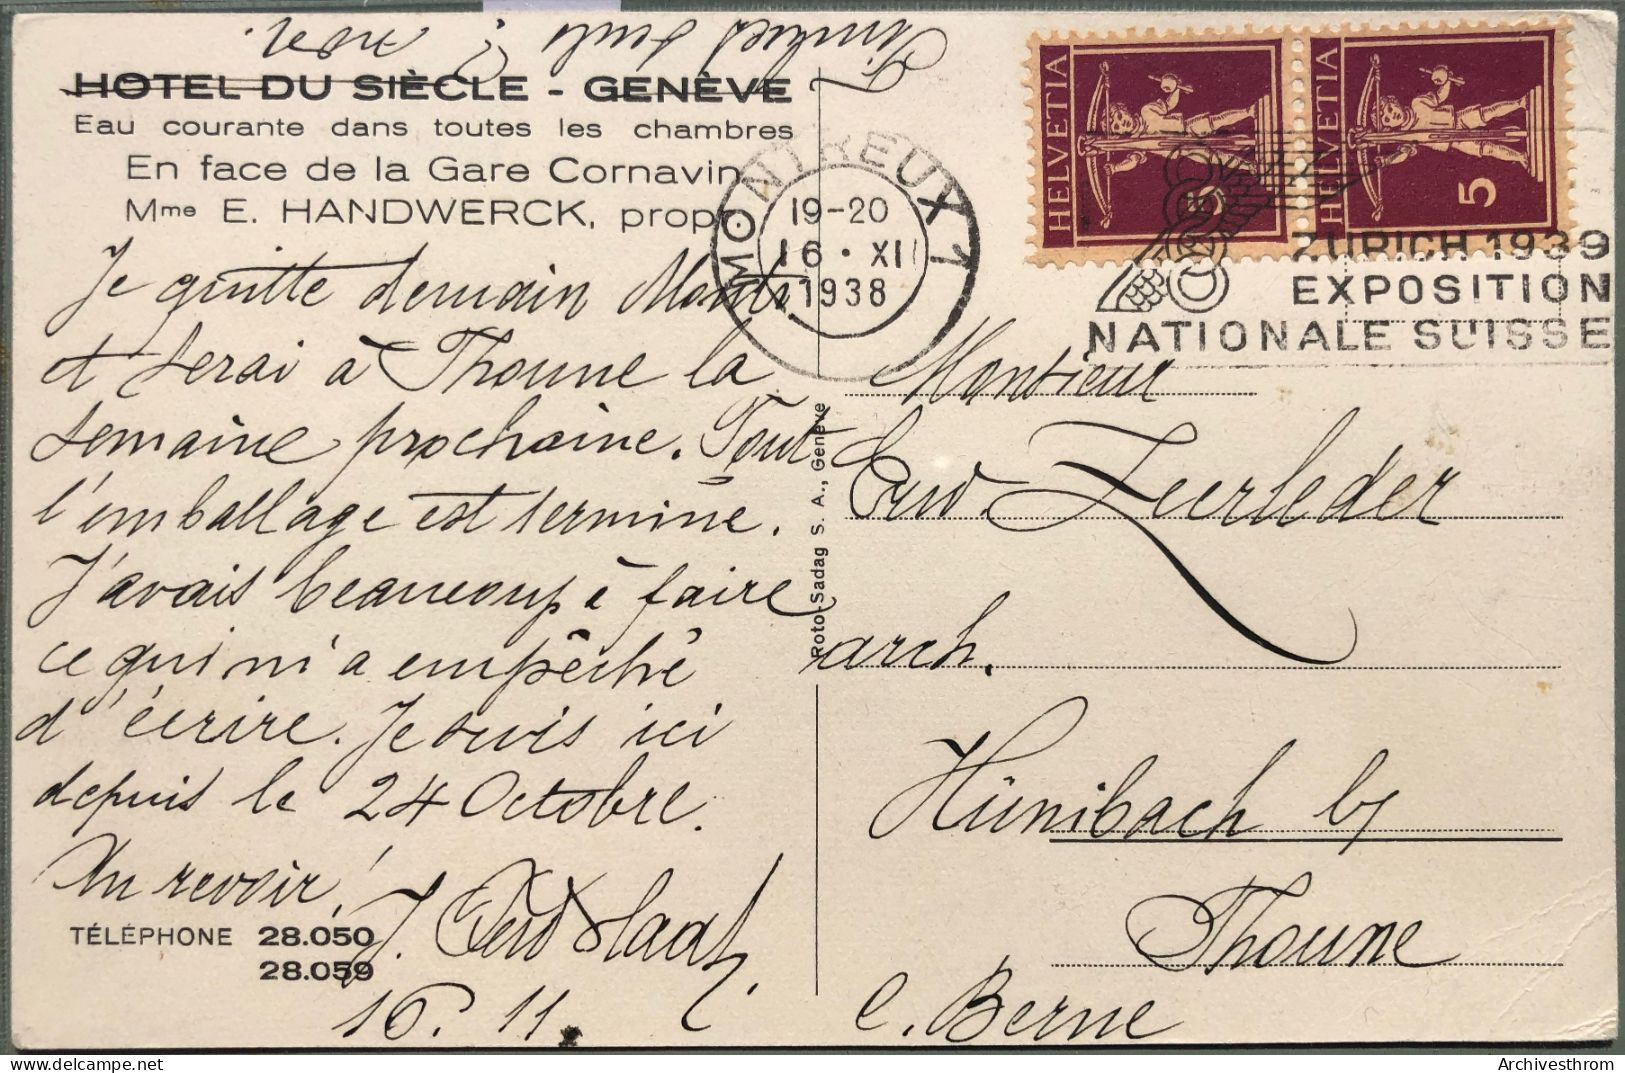 HOTEL DU SIÈCLE - GENÈVE
Eau courante dans toutes les chambres
En face de la Gare Cornavin
Mme E. HANDWERCK, propr.
Je quitte demain Montr.
et serai à Thoune la
semaine prochaine. Tout
l'emballage est terminé.
J'avais beaucoup à faire
ce qui m'a empêché
d'écrire. Je suis ici
depuis le 24 Octobre.
Au revoir!
TÉLÉPHONE 28.050
28.059
J.
16. 11.
Roto-Sadag S. A., Genève
MONTREUX 1
19-20
16. XI
1938
HELVETIA
5
HELVETIA
5
ZURICH 1939
EXPOSITION
NATIONALE SUISSE
Monsieur
Zeerleder
arch.
Hünibach b/
Thoune
C. Berne
Archivesthrom